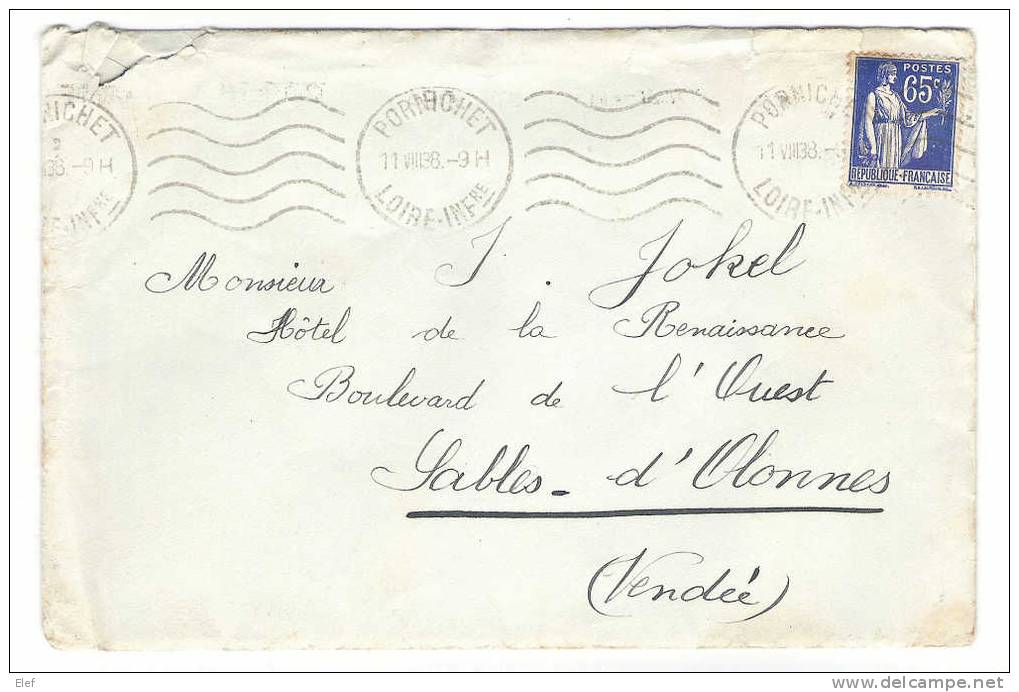 PORNICHET
11 VIII 38.-9H
LOIRE-INFRE
PORNICHET
38.-9H
POSTES
65c
REPUBLIQUE-FRANÇAISE
Monsieur J. Jokel
Hôtel de la Renaissance
Boulevard de l'Ouest
Sables-d'Olonnes
(Vendée)
Elef
delcampe.net